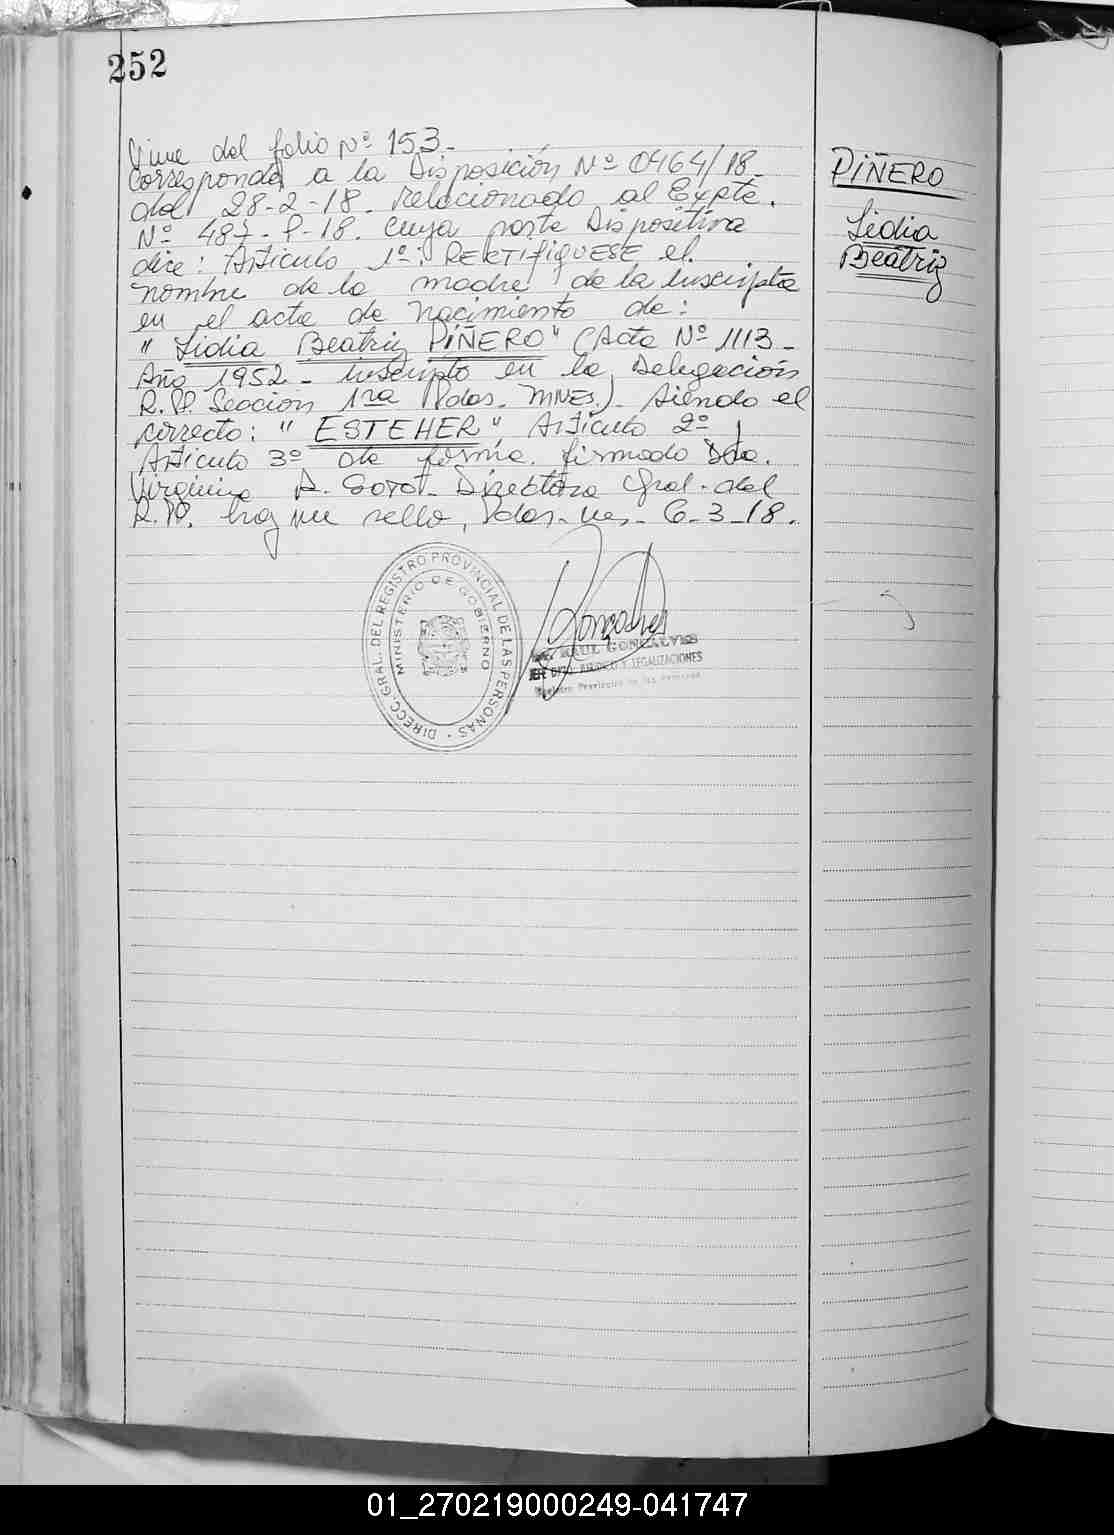 252
Viene del folio Nº 153-
Corresponde a la Disposición Nº 0464/18-
del 28-2-18. relacionado al Expte.
Nº 487-P-18. cuya parte Dispositiva
dice: Articulo 1º: REKTIFIQUESE el
nombre de la madre de la inscripta
en el acta de nacimiento de:
" Lidia Beatriz PIÑERO" (Acta Nº 1113-
Año 1952- inscripto en la Delegación
R.P. Sección 1ra Pdas. MNES.)- siendo el
correcto: " ESTEHER" Articulo 2º y
Articulo 3º de forma. firmado Dra.
Virginia A. Directora Gral. del
R.P. hay un sello, Pdas- Mes- 6-3-18.
PIÑERO
Lidia
Beatriz
DIRECC. GRAL. DEL REGISTRO PROVINCIAL DE LAS PERSONAS
MINISTERIO DE GOBIERNO
RAUL GONCALVES
JEFE DPTO. JURIDICO Y LEGALIZACIONES
Registro Provincial de las Personas
01_270219000249-041747